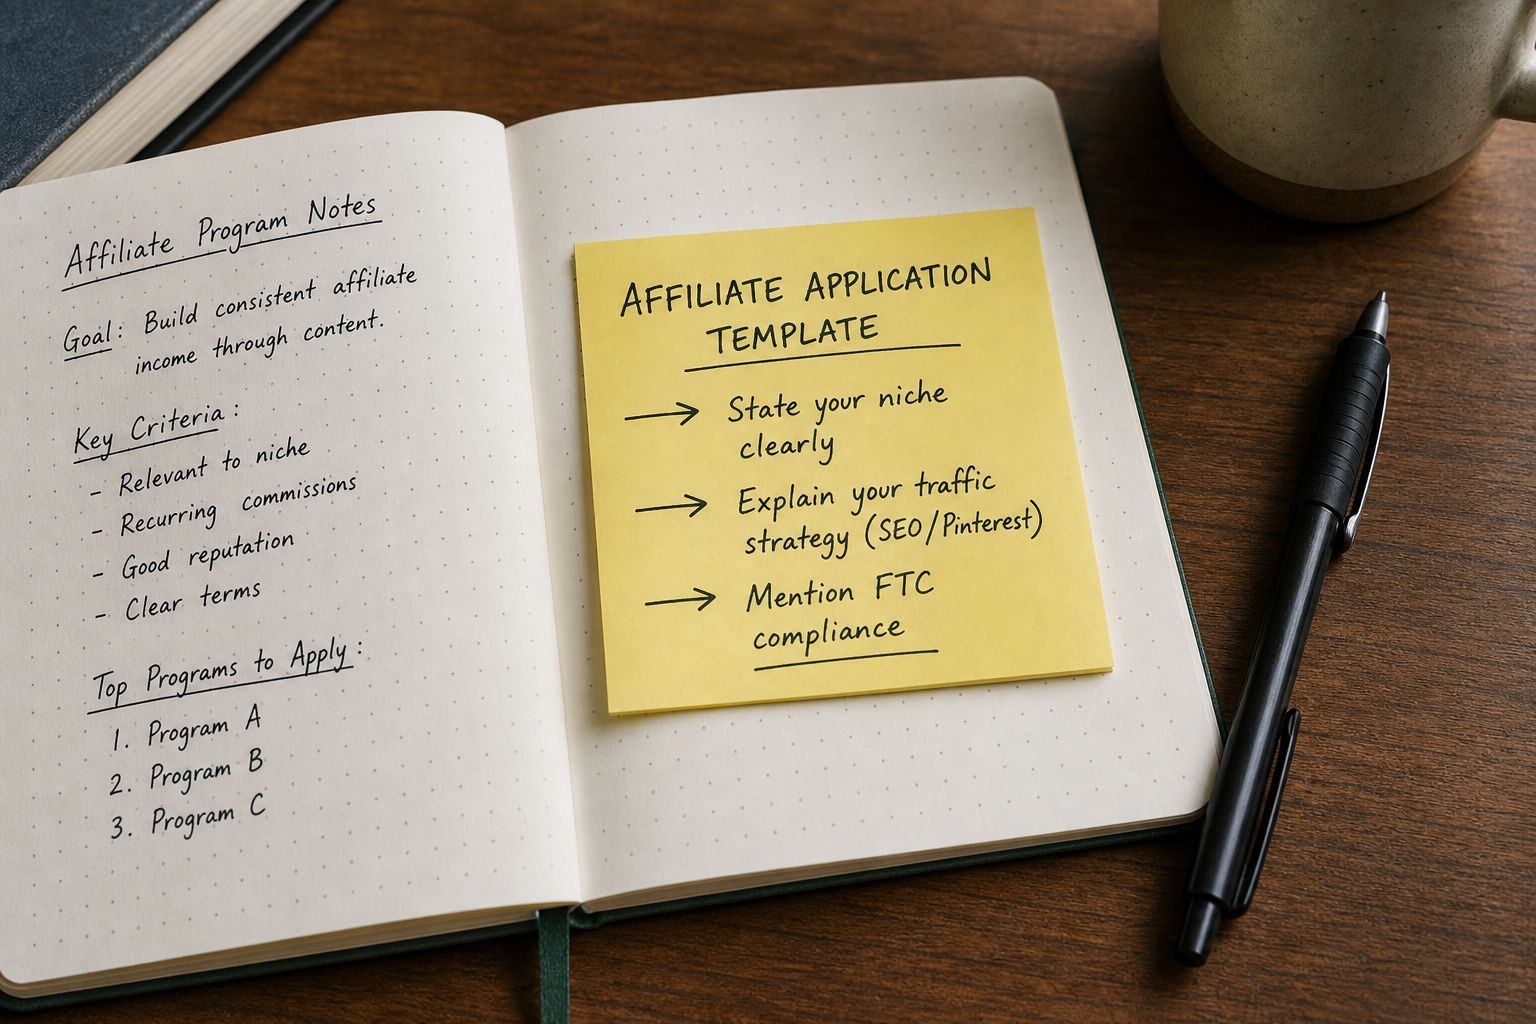 Affiliate Program Notes
Goal: Build consistent affiliate
income through content.
Key Criteria:
- Relevant to niche
- Recurring commissions
- Good reputation
- Clear terms
Top Programs to Apply:
1. Program A
2. Program B
3. Program C
AFFILIATE APPLICATION
TEMPLATE
→ State your niche
clearly
→ Explain your traffic
strategy (SEO/Pinterest)
→ Mention FTC
compliance